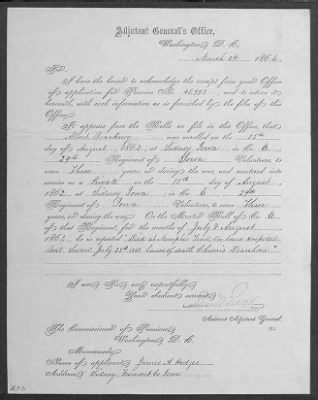 Adjutant General's Office,
Washington, D. C.
March 2d 1864.
Sir:
I have the honor to acknowledge the receipt from your Office
of application for Pension No. and to return it
herewith, with such information as is furnished by the files of this
Office.
It appears from the Rolls on file in this Office, that
Albert was enrolled on the 15th
day of August 1862, at Sidney Iowa in Co. E
29th Regiment of Iowa Volunteers, to
serve Three years, or during the war, and mustered into
service as a Private on the day of August
1862, at Sidney Iowa, in Co. E 29th
Regiment of Iowa Volunteers, to serve Three
years, or during the war. On the Muster Roll of Co. E
of that Regiment, for the months of July & August
1863, he is reported "Died at Memphis Tenn. Hospital,
July 1863 Chronic Diarrhoea."
I am, Sir, very respectfully,
Your obedient servant,
Assistant Adjutant General.
The Commissioner of Pensions,
Washington, D. C.
Memoranda:
Name of applicant, James A. Hodges
Address, Sidney, Fremont Co Iowa